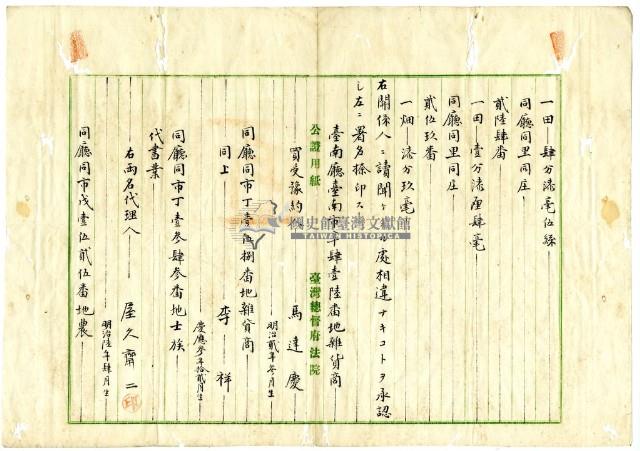 一田肆分漆毫伍絲
同廳同里同庄
貳陸肆番
一田壹分漆厘肆毫
同廳同里同庄
貳伍玖番
一畑漆分玖毫
右關係人ニ讀聞ケ 處相違ナキコトヲ承認
シ左ニ署名捺印ス
臺南廳臺南市 肆壹陸番地雜貨商
買受豫約
馬達慶
明治貳年參月生
公證用紙
臺灣總督府法院
同廳同市丁 捌番地雜貨商
同上
李祥
慶應參年拾貳月生
同廳同市丁壹參肆參番地士族
代書業
右兩名代理人
屋久齋二
明治陸年肆月生
同廳同市戊壹伍貳伍番地農
國史館臺灣文獻館
TAIWAN HISTORICA